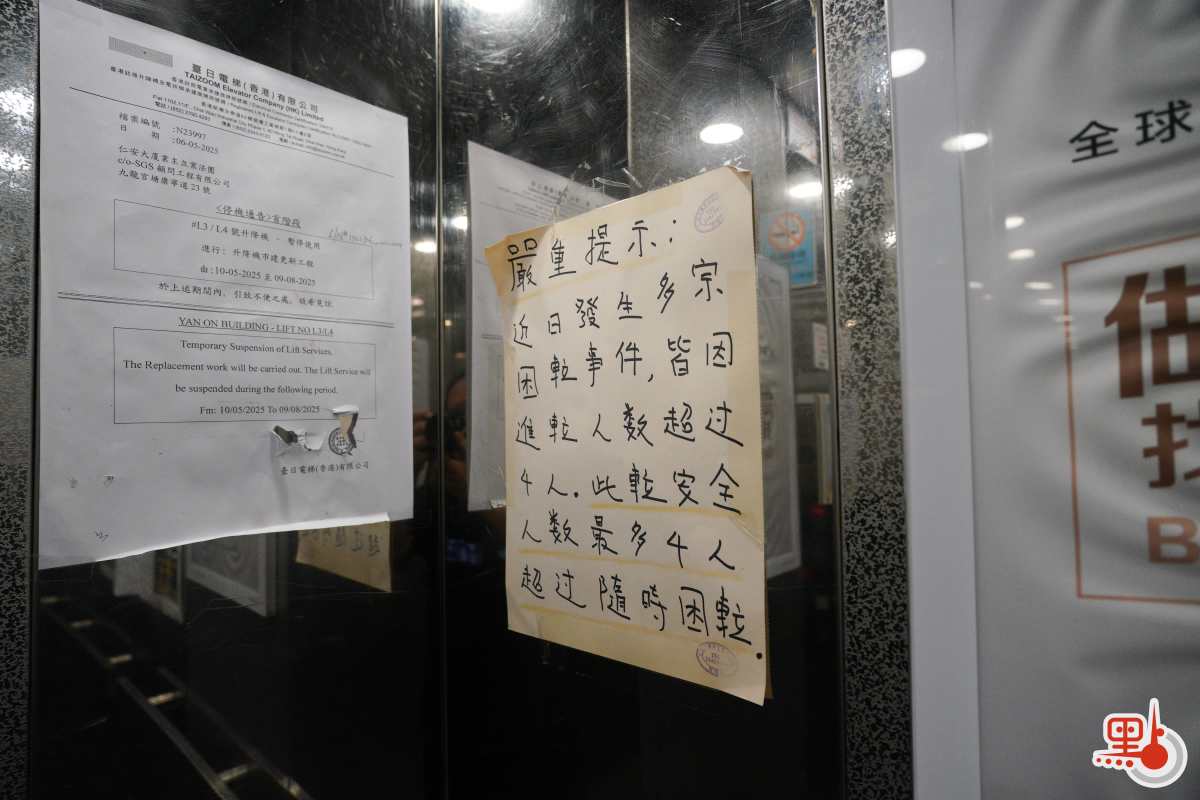 臺日電梯(香港)有限公司
TAIZOOM Elevator Company (HK) Limited
檔案編號 :N23997
日 期 :06-05-2025
仁安大廈業主立案法團
c/o-SGS 顧問工程有限公司
九龍官塘康寧道 23 號
<停機通告>首階段
#L3 / L4 號升降機 - 暫停使用
進行: 升降機市建更新工程
由:10-05-2025 至 09-08-2025
於上述期間內, 引致不便之處, 敬希見諒.
YAN ON BUILDING - LIFT NO L3/L4
Temporary Suspension of Lift Services.
The Replacement work will be carried out. The Lift Service will
be suspended during the following period.
Fm: 10/05/2025 To 09/08/2025
臺日電梯(香港)有限公司
嚴重提示:
近日發生多宗
困䢂事件,皆因
進䢂人数超过
4人。此䢂安全
人数最多4人
超过隨時困䢂
全球
估
找
B
點